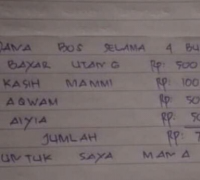 DANA BOS SELAMA 4 BU
BAYAR UTANG Rp. 500
KASIH MAMMI Rp. 100
AQWAM Rp. 50
AIYIA Rp. 50
JUMLAH Rp. 7
UNTUK SAYA MANA